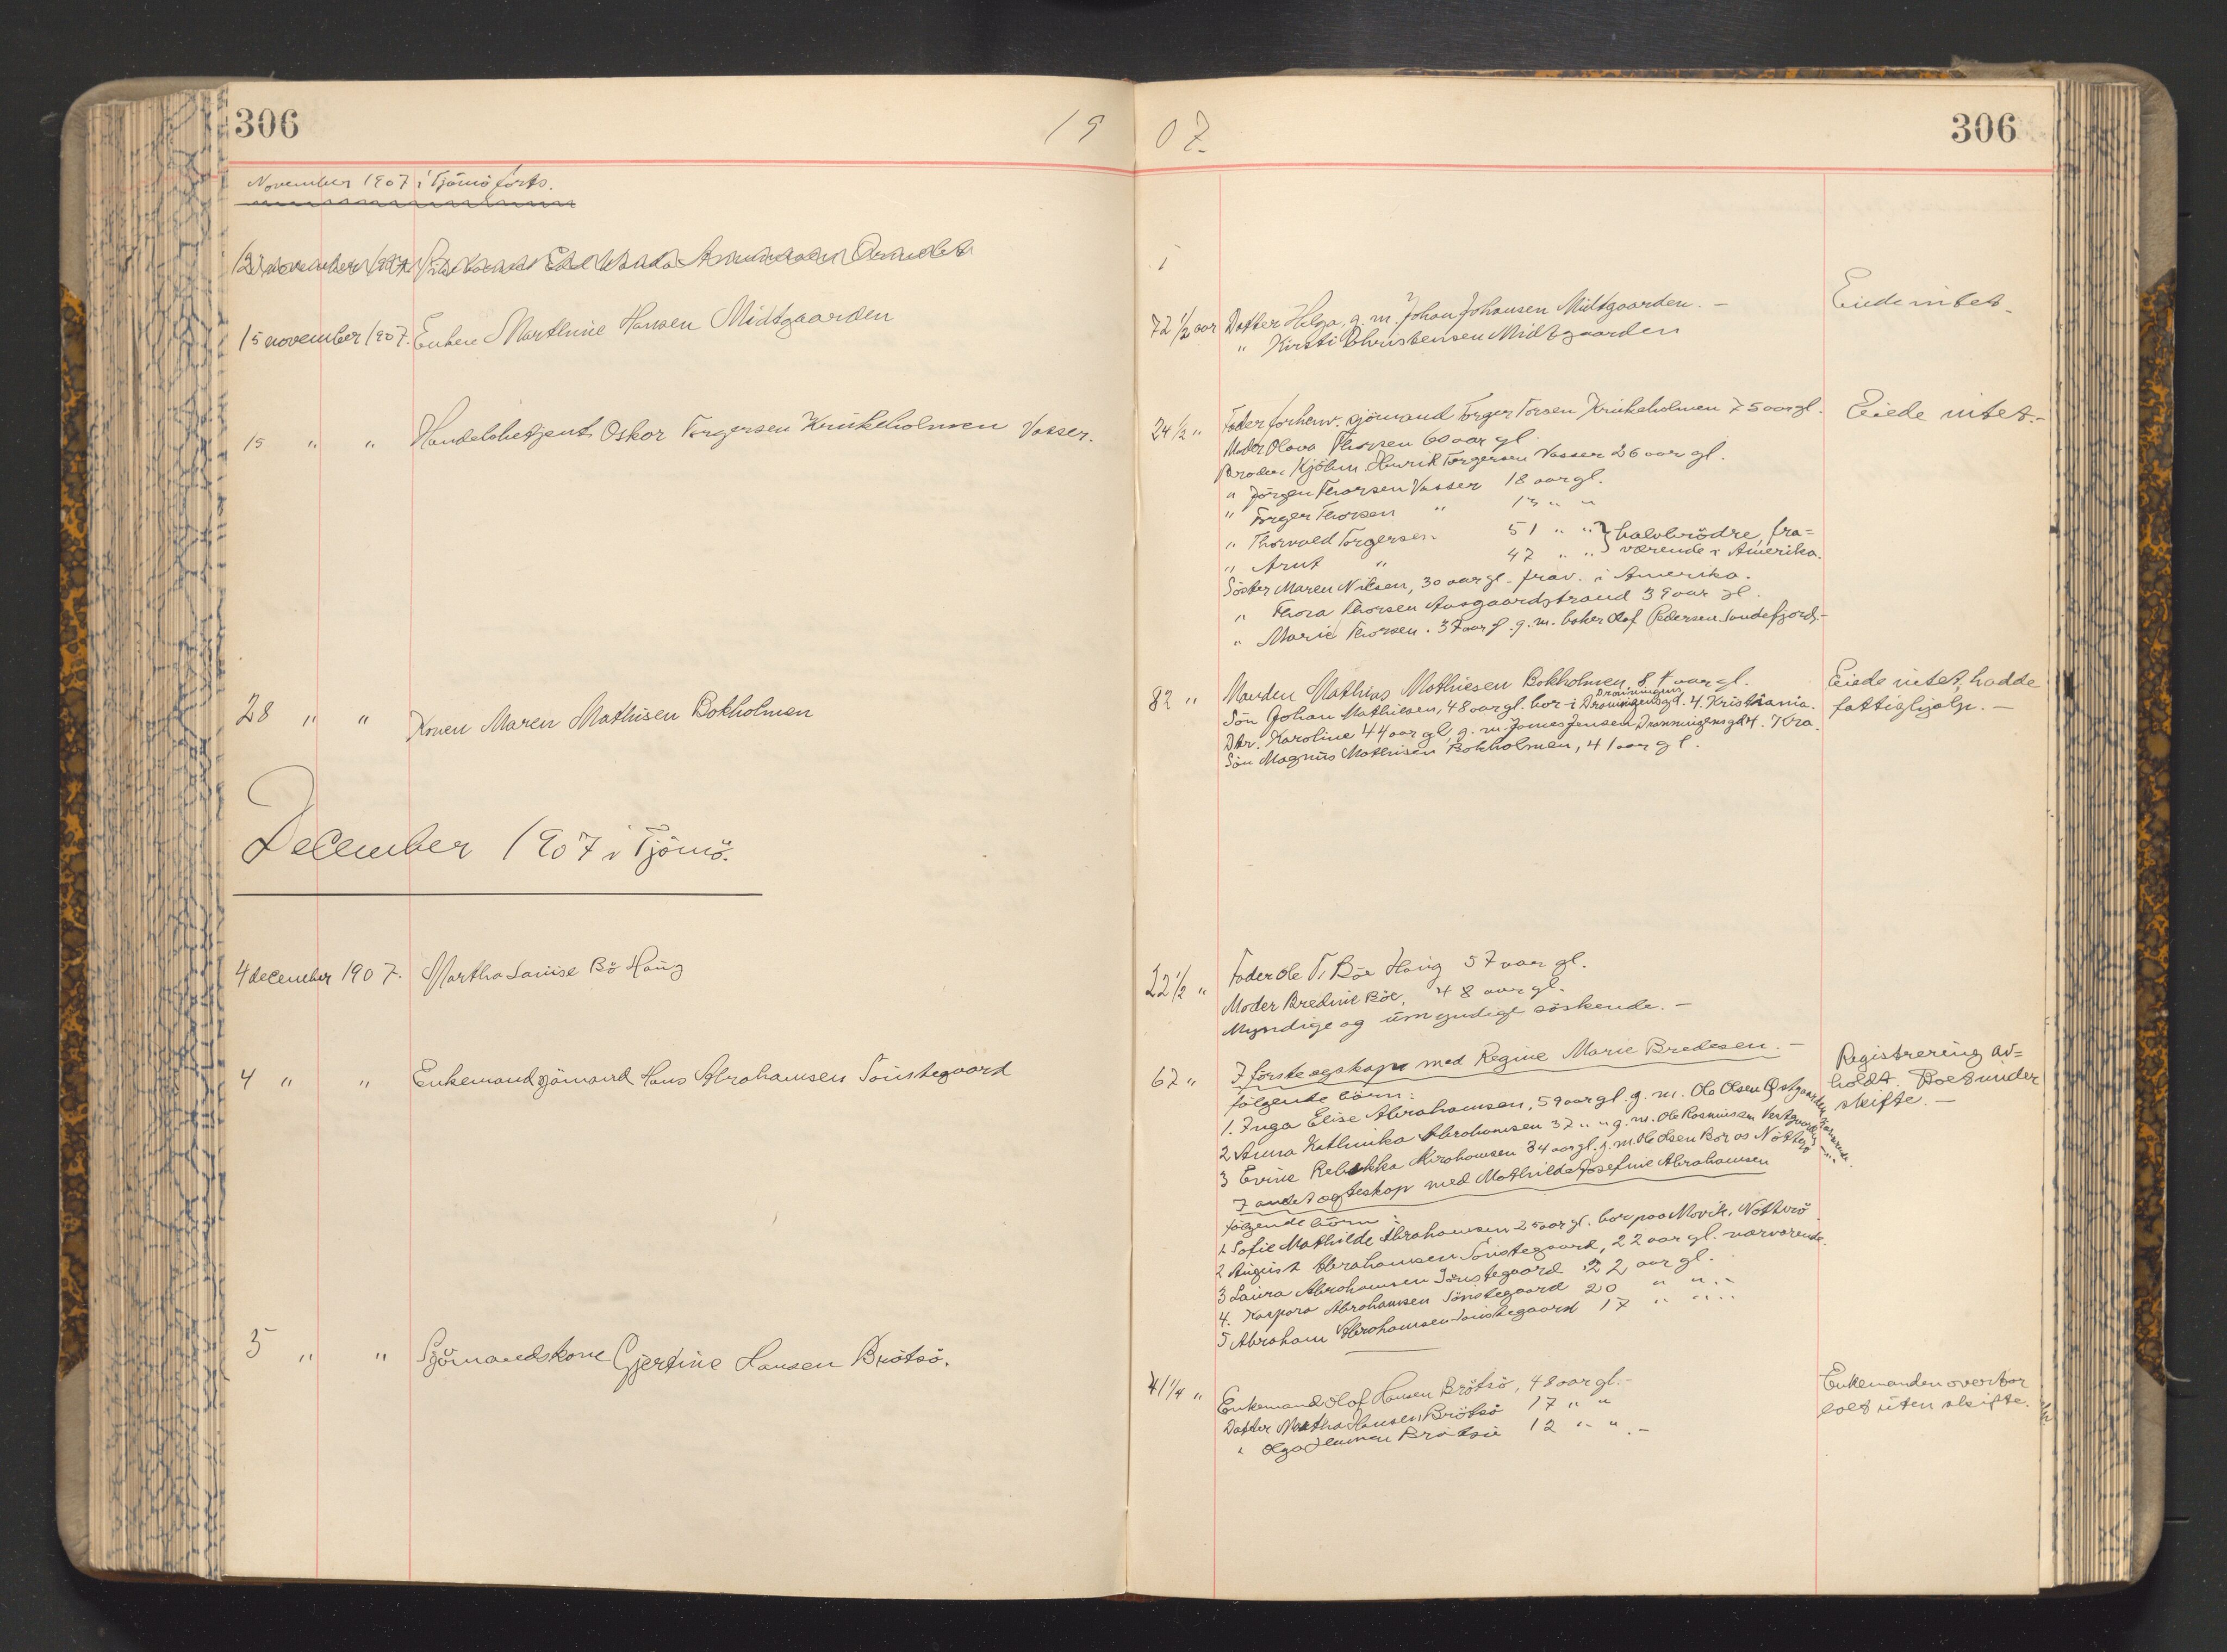 306
19 07.
306
November 1907 i Tjömö forts.
15 november 1907. Enken Marthine Hansen Midtgaarden
72 1/2 aar Datter Helga, g. m. Johan Johansen Midtgaarden. –
" Kirsti Christensen Midtgaarden
Eiede intet
15 " " Handelsbetjent Oskar Torgersen Krukeholmen Vasser.
24 1/2 " Fader forhenv. sjömand Torger Torsen Krukeholmen 75 aar gl.
Moder Olava Thorsen 60 aar gl.
Broder Kjöbm. Henrik Torgersen Vasser 26 aar gl.
" Jörgen Thorsen Vasser 18 aar gl.
" Torger Thorsen " 13 " "
" Thorvald Torgersen 51 " " } halvbrödre, fra=
" Arnt " 47 " " } værende i Amerika.
Söster Maren Nilsen, 30 aar gl. frav. i Amerika.
" Thora Thorsen Aasgaardstrand 39 aar gl.
" Marie Thorsen. 37 aar gl. g. m. baker Olaf Pedersen Sandefjord. –
Eiede intet. –
28 " " Konen Maren Mathisen Bokholmen
82 " Manden Mathias Mathiesen Bokholmen 84 aar gl.
Sön Johan Mathiesen, 48 aar gl. bor i Dronningensgd. 4. Kristiania.
Dronningens
Dtr. Karoline 44 aar gl, g. m. James Jensen Dronningensgd 4. Kra.
Sön Magnus Mathisen Bokholmen, 41 aar gl.
Eiede intet, hadde
fattighjælp. –
December 1907 i Tjömö.
4 december 1907. Martha Lauise Bö Haug
22 1/2 " Fader Ole T. Böe Haug 57 aar gl.
Moder Bredine Böe, 48 aar gl.
Myndige og umyndige söskende. –
4 " " Enkemand sjömand Hans Abrahamsen Sönstegaard
67 " I förste egskap med Regine Marie Bredesen. –
fölgende börn:
1. Inga Elise Abrahamsen, 59 aar gl. g. m. Ole Olsen Østgaarden,
2 Anna Kathinka Abrahamsen 37 " " g. m. Ole Rasmussen Vestgaarden
3 Evine Rebekka Abrahamsen 34 aar gl. g. m. Ole Olsen Bör os Nötterö
I andet egteskap med Mathilde Josefine Abrahamsen
fölgende börn:
1 Sofie Mathilde Abrahamsen 25 aar gl. bor paa Movik, Nötterö
2 August Abrahamsen Sönstegaard, 22 aar gl. nærværende.
3 Laura Abrahamsen Sönstegaard 22 aar gl.
4. Kaspara Abrahamsen Sönstegaard 20 " " –
5 Abraham Abrahamsen Sönstegaard 17 " " –
Registrering av=
holdt. Boet under
skifte. –
5 " " Sjömandskone Gjertine Hansen Brötsö.
41 1/4 " Enkemand Olof Hansen Brötsö, 48 aar gl. –
Datter Martha Hansen Brötsö 17 " "
" Olga Hansen Brötsö 12 " " –
Enkemanden overtar
boet uten skifte.